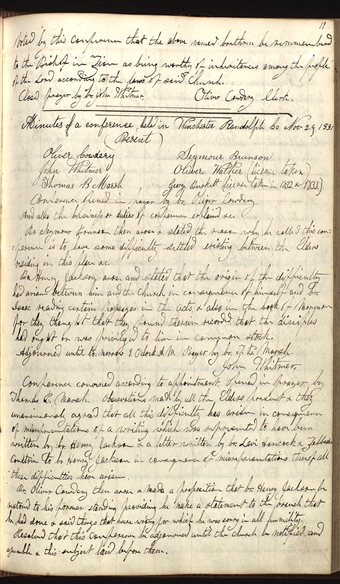 19
Voted by this conference that the above named brethren be recommended
to the Bishop in Zion as being worthy of inheritances among the people
of the Lord according to the laws of said Church.
Closed prayer by br. John Whitmer. Oliver Cowdery Clerk.
Minutes of a conference, held in Winchester Randolph Co Nov. 29, 1831
(Present)
Oliver Cowdery Seymour Brunson
John Whitmer Oliver Walker
Thomas B Marsh George Burkett
Conference opened in prayer by br. Oliver Cowdery.
And also the business or duties of conference explained &c.
Br. Seymour Brunson then arose & stated the reason why he called this con-
ference is to have some difficulty settled existing between the Elders
residing in this place &c.
Br. Henry Jackson arose and stated that the origin of the difficulty
had arisen between him and the Church in consequence of himself and Br.
Isaac reading certain passages in the Acts, & also in the book of Mormon
for they thought that they found therein record that the disciples
had ought or was privileged to live in common stock.
Adjourned until tomorrow 8 O'clock A.M. Prayer by br. T. B. Marsh.
John Whitmer.
Conference convened according to appointment opened in prayer by
Thomas B. Marsh. Observations made by all the Elders present & they
unanimously agreed that all this difficulty has arisen in consequence
of misrepresentations of a writing which was represented to have been
written by br. Henry Jackson & a letter written by br. Levi Hancock &
to br. Henry Jackson in consequence of misrepresentations thereof all
these difficulties have arisen.
Br. Oliver Cowdery then arose & made a proposition that br. Henry Jackson be
restored to his former standing providing he make a statement to the branch that
he had done & said things that were wrong for which he was sorry in all humility.
Resolved that this conference be adjourned until the Church be notified and
assemble & this subject laid before them.